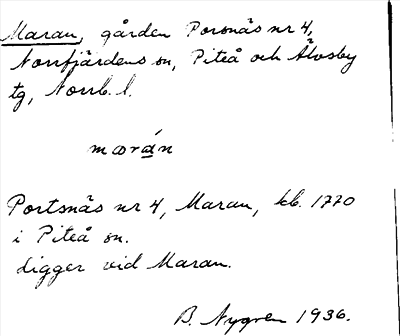 Maran, gården Porsnäs nr 4,
Norrfjärdens sn, Piteå och Älvsby
tg, Norrb. l.
mɷrán
Portsnäs nr 4, Maran, kb. 1770
i Piteå sn.
Ligger vid Maran.
B. Nygren 1936.